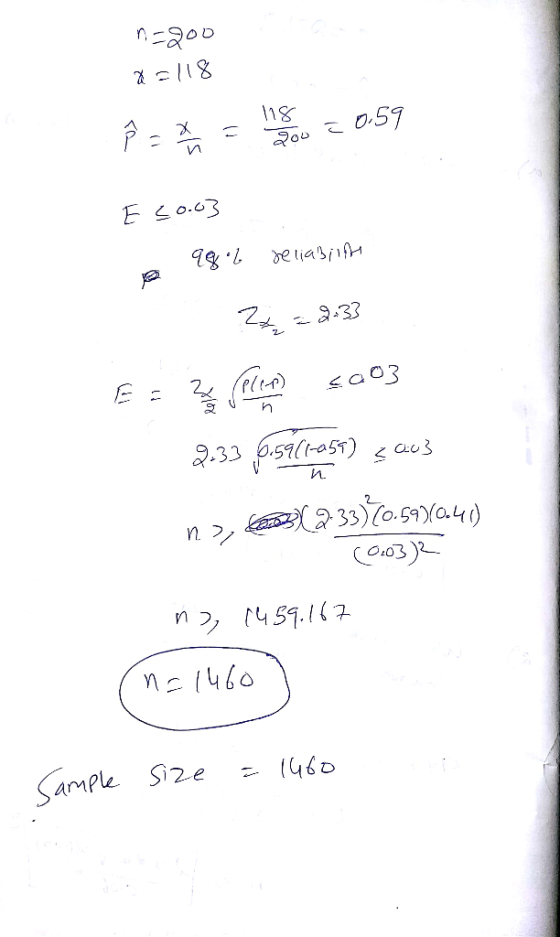 n=200
x=118
p̂ = x/n = 118/200 = 0.59
E ≤ 0.03
98% reliability
Zα/2 = 2.33
E = Zα/2 √(P(1-P)/n) ≤ 0.03
2.33 √(0.59(1-0.59)/n) ≤ 0.03
n ≥ (2.33)²(0.59)(0.41)/(0.03)²
n ≥ 1459.167
n=1460
Sample size = 1460